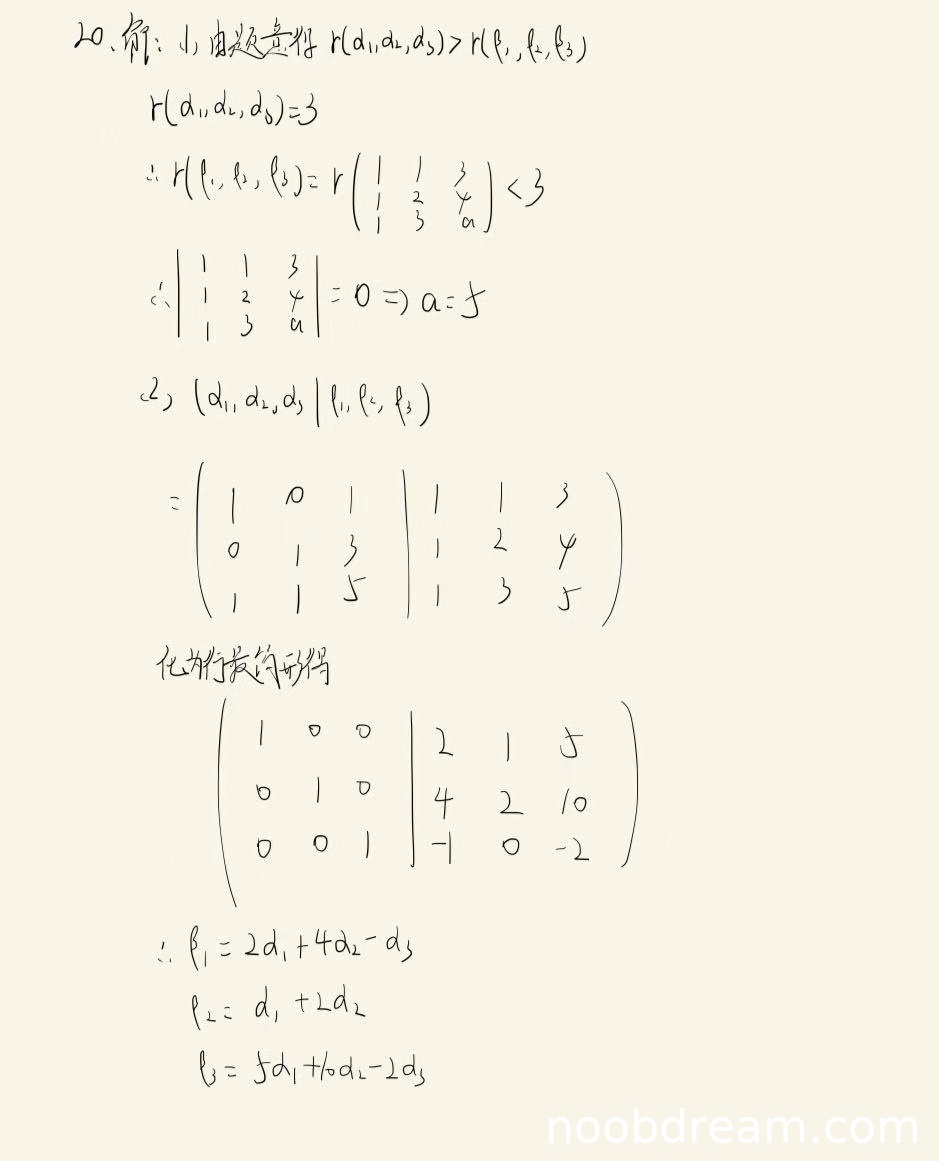 20、解：(1) 由题意得 r(α₁,α₂,α₃)>r(β₁,β₂,β₃)
r(α₁,α₂,α₃)=3
∴ r(β₁,β₂,β₃)=r(1 1 3
1 2 4
1 3 a)<3
∴|1 1 3
1 2 4
1 3 a|=0 ⇒ a=5
(2) (α₁,α₂,α₃|β₁,β₂,β₃)
=(1 0 1|1 1 3
0 1 3|1 2 4
1 1 5|1 3 5)
化为行最简形得
(1 0 0|2 1 5
0 1 0|4 2 10
0 0 1|-1 0 -2)
∴ β₁=2α₁+4α₂-α₃
β₂=α₁+2α₂
β₃=5α₁+10α₂-2α₃
noobdream.com